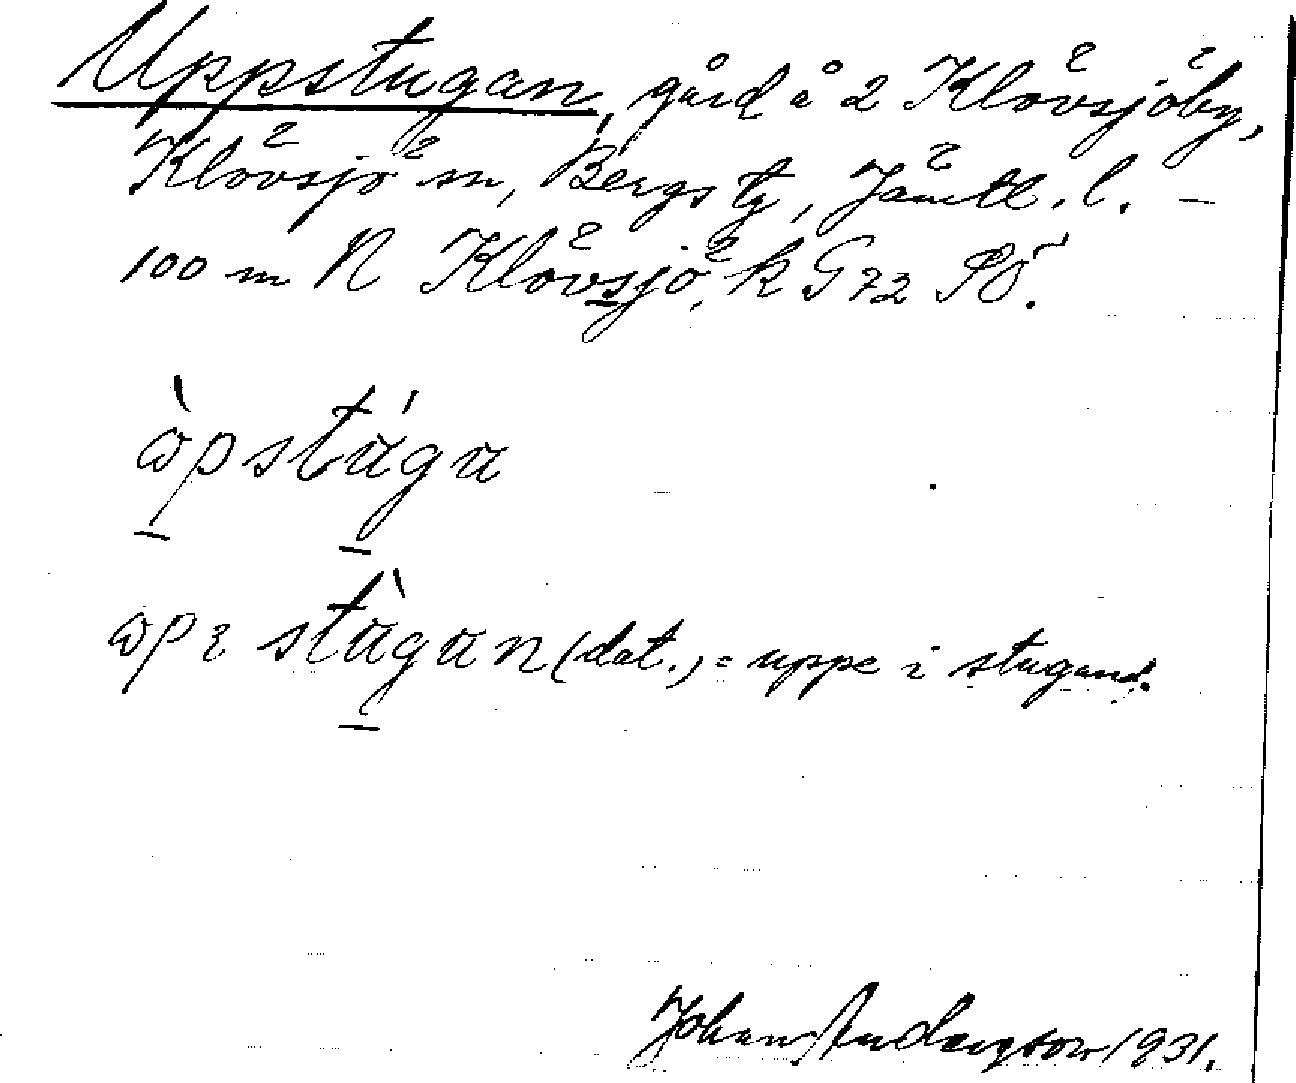 Uppstugan, gård å 2 Klövsjöby,
Klövsjö sn, Bergs tg, Jämtl. l. –
100 m N Klövsjö, k G72 SÖ.
ɷ̀pstúga
ɷpɛ stùgun (dat.) = uppe i stugan.
Johan Anderzson 1931.